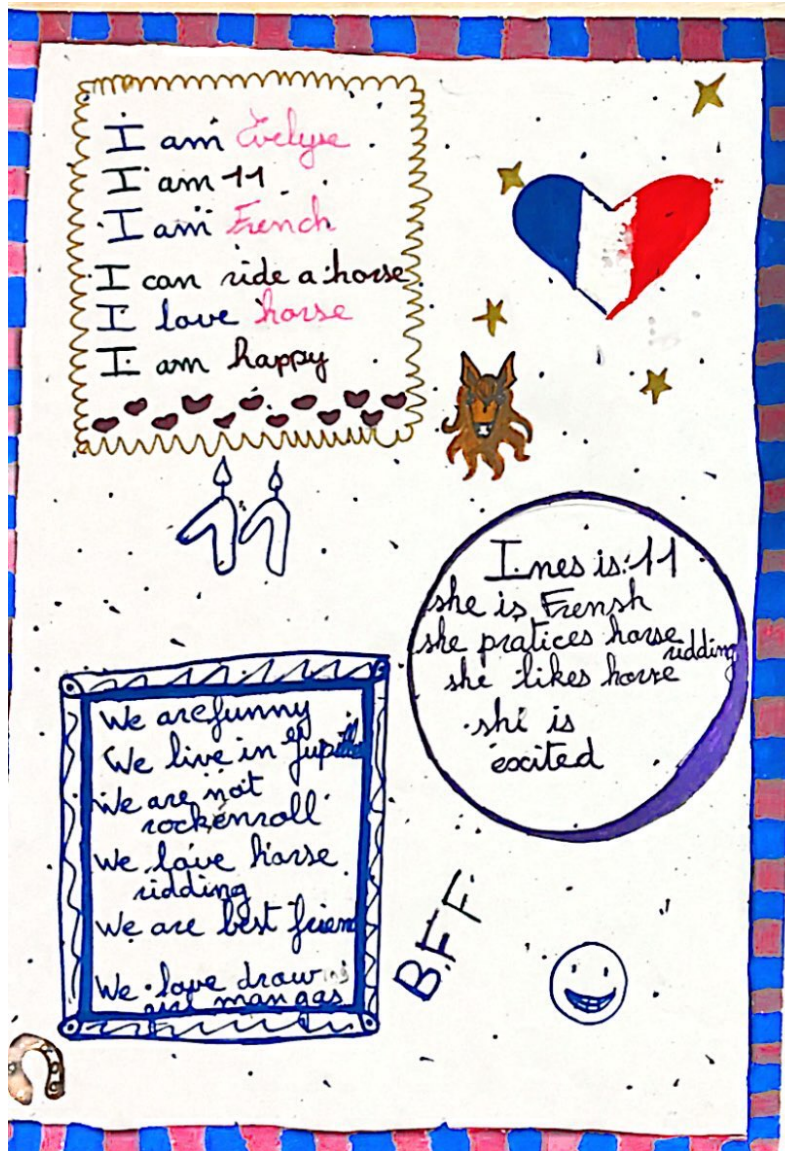 I am Evelyse
I am 11
I am French
I can ride a horse
I love horse
I am happy
11
Ines is 11
she is Frensh
she pratices horse
ridding
she likes horse
shi is
excited
We are funny
We live in
We are not
rockenroll
We love horse
ridding
We are best frien
We love drawing
mangas
B.F.F.